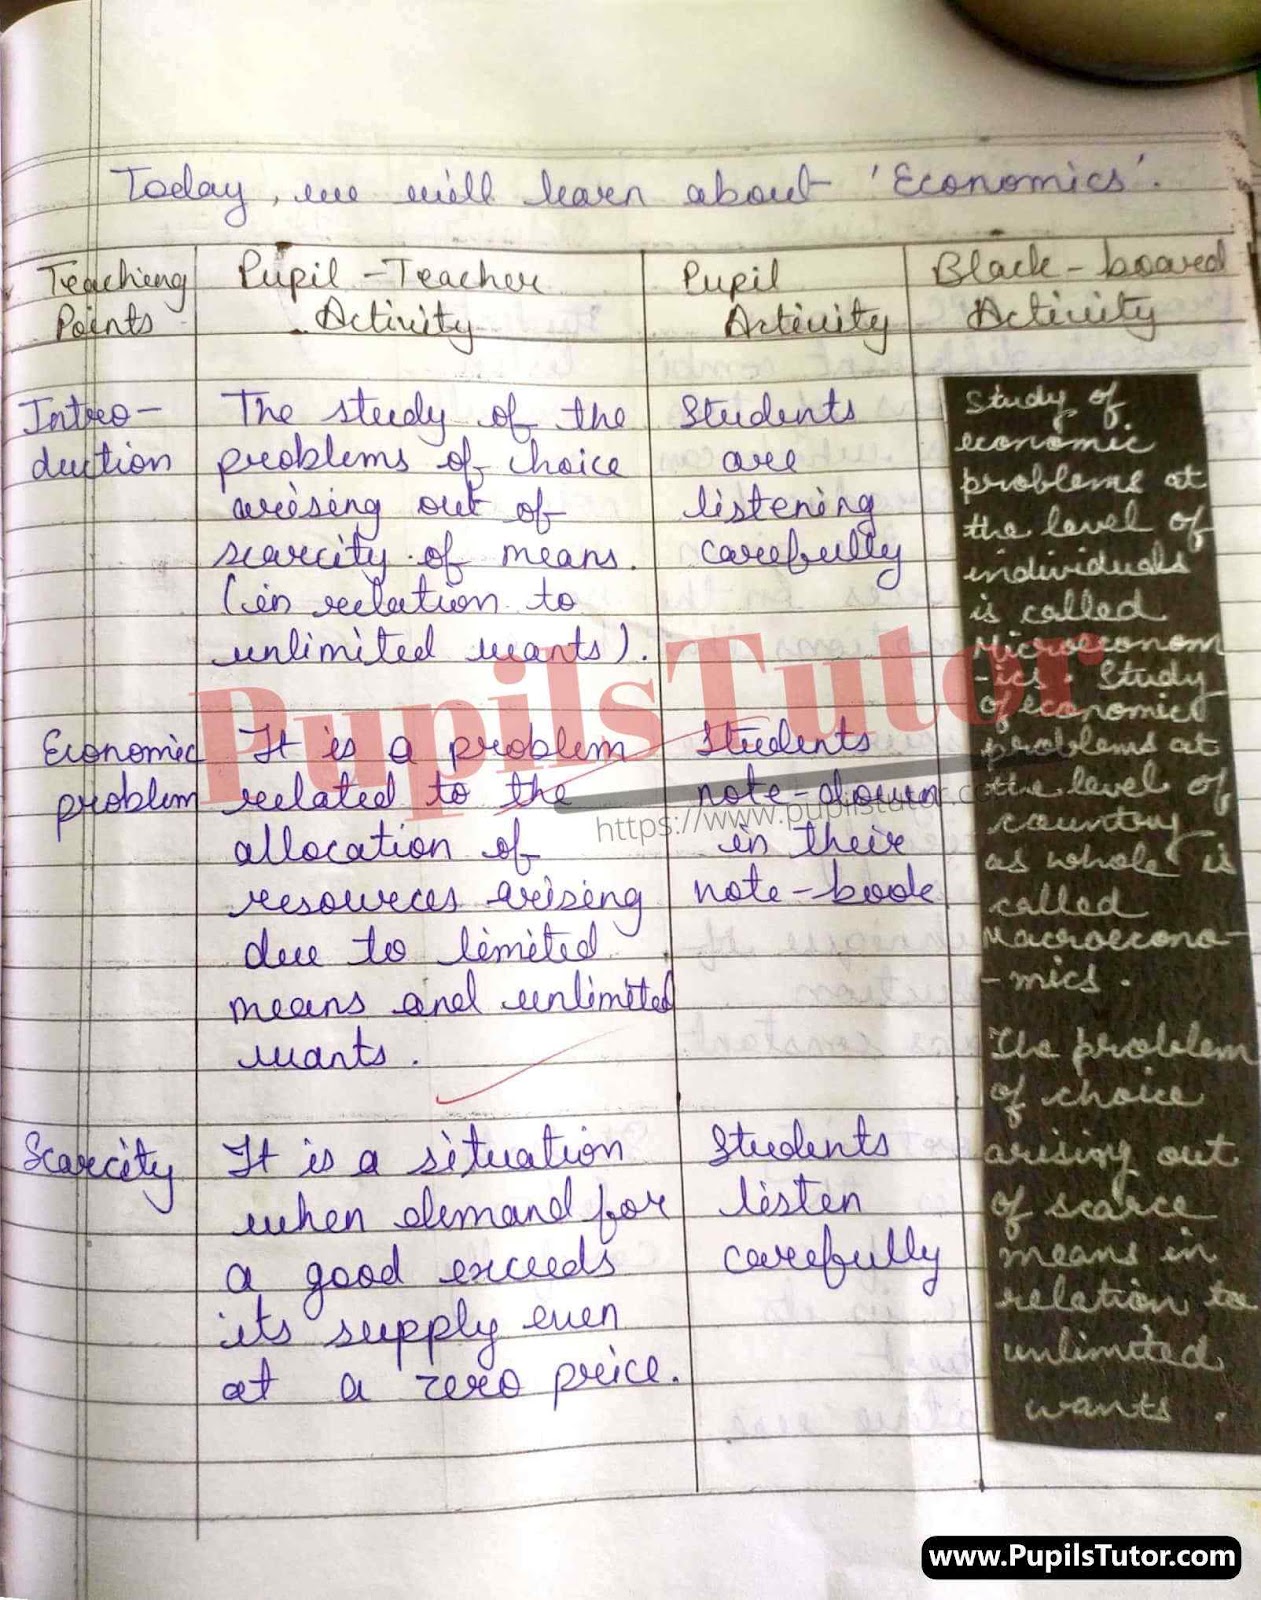 Today, we will learn about 'Economics'.
Teaching
Points
Pupil-Teacher
Activity
Pupil
Activity
Black-board
Activity
Intro-
duction
The study of the
problems of choice
arising out of
scarcity of means
(in relation to
unlimited wants).
Students
are
listening
carefully
Economic
problem
It is a problem
related to the
allocation of
resources arising
due to limited
means and unlimited
wants.
Students
note-down
in their
note-book
Scarcity
It is a situation
when demand for
a good exceeds
its supply even
at a zero price.
Students
listen
carefully
Study of
economic
problems at
the level of
individuals
is called
Microeconom
-ics. Study
of economic
problems at
the level of
country
as whole is
called
Macroecono-
-mics.
The problem
of choice
arising out
of scarce
means in
relation to
unlimited
wants.
PupilsTutor
https://www.pupilstutor.com
www.PupilsTutor.com